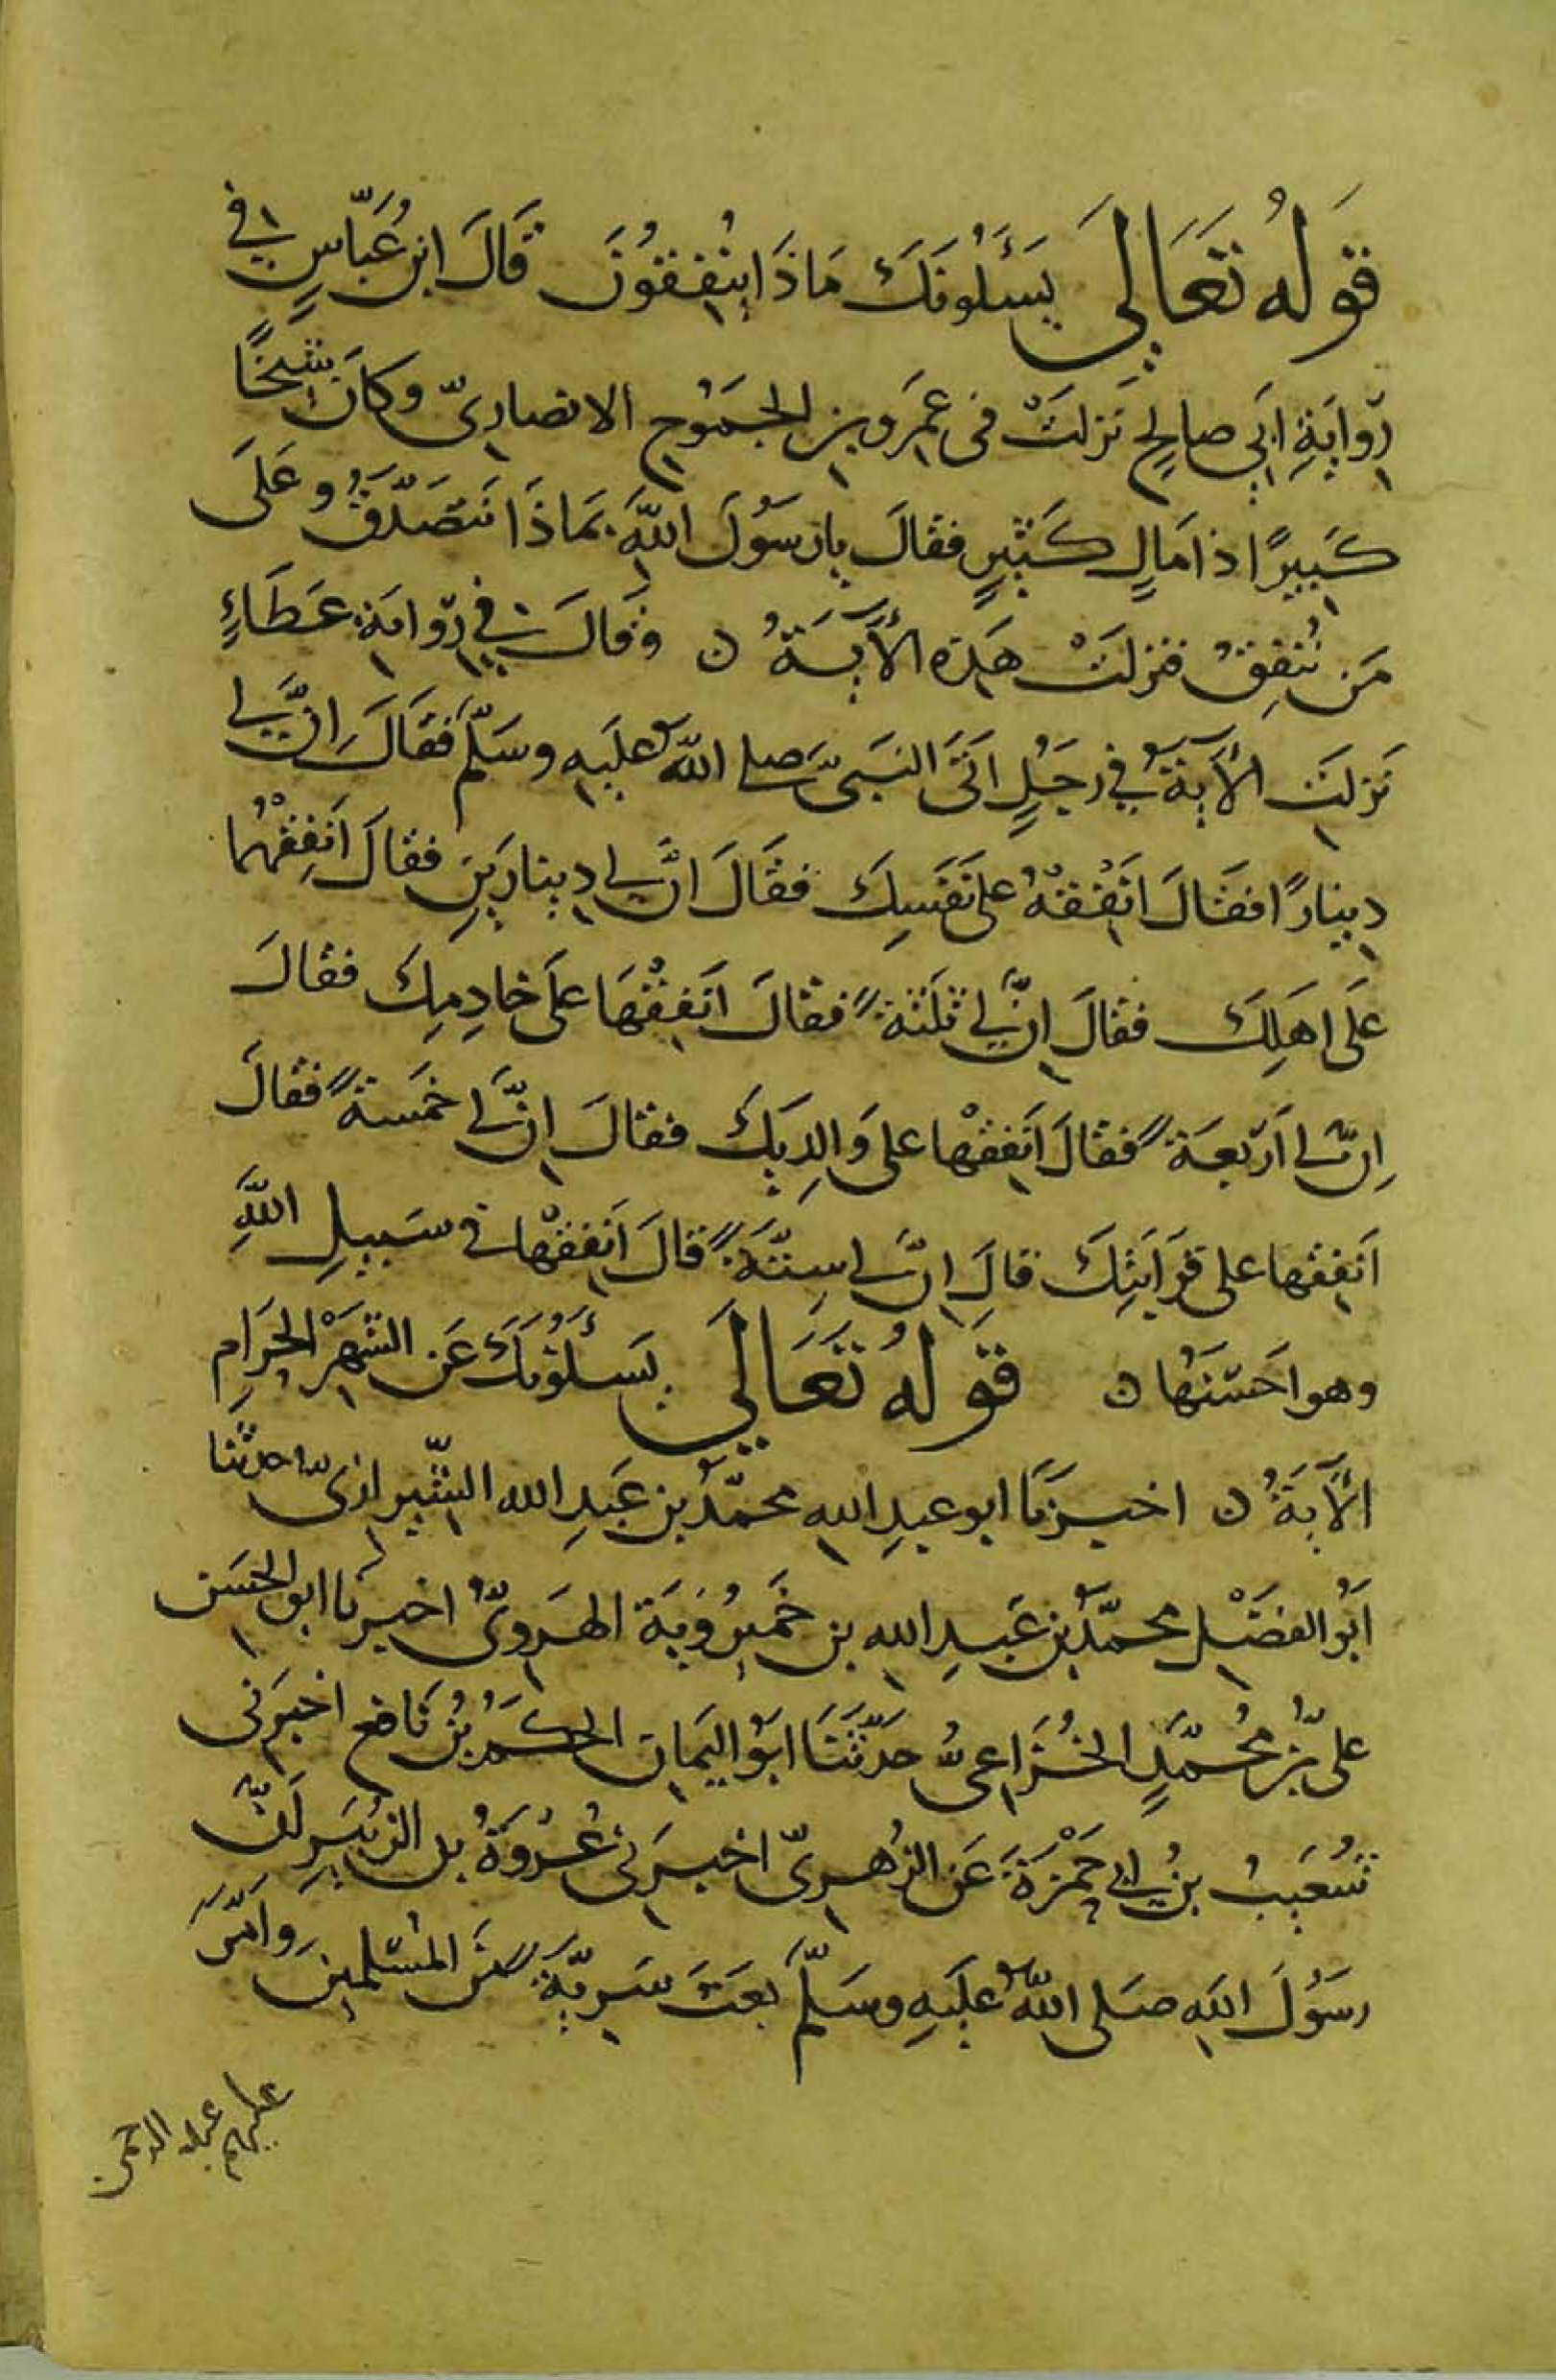 قَولُهُ تَعَالَى يَسَـَٔلُونَكَ مَاذَا يُنْفِقُونَ قَالَ ابن عَبَّاسٍ في
رِوايَةِ ابَي صالحٍ نَزلَتْ فى عَمرَو بن الجَمُوح الانصاريّ وكانَ شيخًا
كَبيرًا ذا مَالٍ كَثيرٍ فقالَ يا رَسُولَ اللهِ بمَاذَا نَتَصَدَّقُ وعَلَى
مَن نُنفِقُ فنزلَتْ هَذه الأَيَةُ ن وقالَ في رِوايَة عَطَاءٍ
نَزلَت الأَيَةُ في رَجُلٍ اَتَى النبَيَّ صلى اللهُ عليَه وسَلّمَ فقَالَ اِنَّ لي
دينارًا فقالَ اَنفِقْهُ على نَفسِكَ فقالَ انَّ لي دينارَينِ فقالَ اَنفِقْهُما
عَلَى اهلِكَ فقالَ انَّ لي ثلثةً فقالَ اَنفِقْهَا على خادِمِكَ فقالَ
اِنَّ لي اَربعَةً فقالَ اَنفِقْها على وَالِدَيكَ فقالَ انَّ لي خمَسةً فقالَ
اَنفِقْها على قرَابَتِكَ قالَ اِنَّ لي سِتَّةً قالَ اَنفِقْها في سَبيلِ اللهِ
وهو احَسَنُها ن قَولُهُ تَعَالَى يَسَـَٔلُونَكَ عَن الشَهْرِ الحَرَامِ
الأَيَةُ ن اخبرَنَا ابو عبدِ الله محمّدُ بن عَبدِ الله الشّيرازىّ حدثنا
اَبُو الفضَلِ محمّدُ بن عَبدِ الله بن خَميرُويَة الهَروىُّ اخبرنا ابو الحسَن
علىّ بن مُحمّدٍ الخُزاعىُّ حَدّثَنَا ابَوُ اليَمان الحكَمُ بنُ نَافع اخبرَنى
شُعَيبُ بنُ ابي حَمْزَةَ عَن الزُهرىّ اخبرَنى عُروَةُ بن الزبَيرِ اَنّ
رسَوُلَ الله صَلى اللهُ عليَهِ وسَلّمَ بعَثَ سَريّةً مّنَ المسُلمينَ وامّرَ
عليهم عبد الرحمن